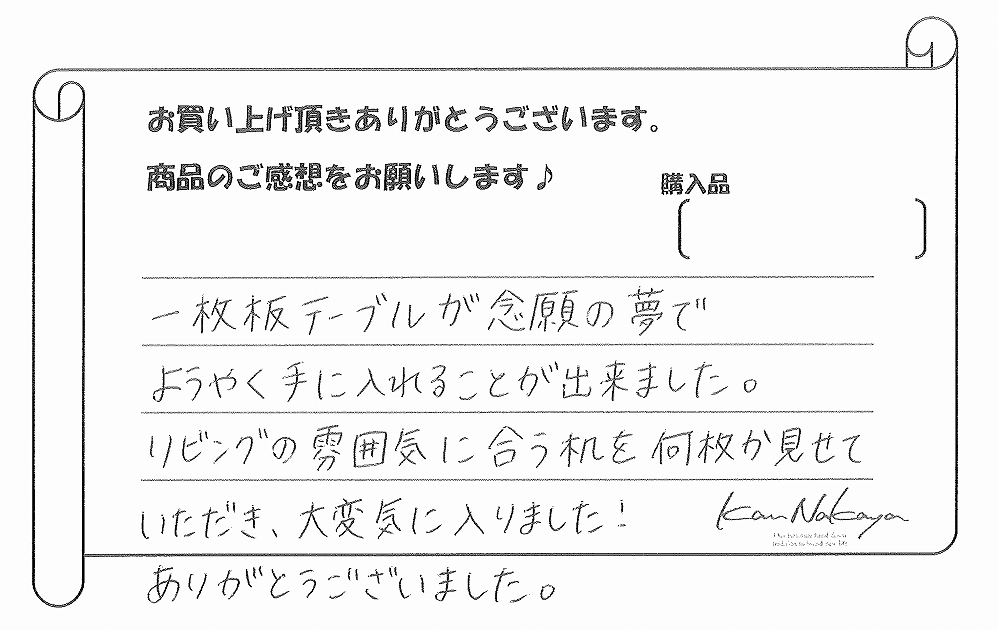 お買い上げ頂きありがとうございます。
商品のご感想をお願いします♪
購入品
一枚板テーブルが念願の夢で
ようやく手に入れることが出来ました。
リビングの雰囲気に合う机を何枚か見せて
いただき、大変気に入りました!
Kan Nakaya
ありがとうございました。